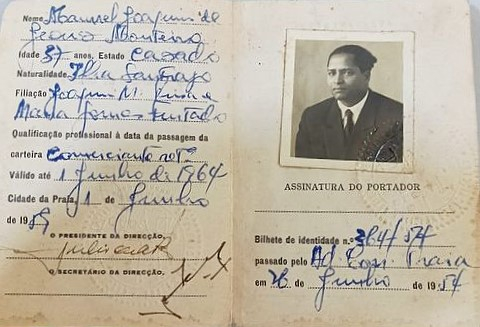 Nome Manuel Joaquim de
Monteiro
Idade 37 anos, Estado Casado
Naturalidade Ilha Santiago
Filiação Joaquim M.
e
Maria Gomes Furtado
Qualificação profissional à data da passagem da
carteira Comerciante
Válido até 1 Junho de 1964
Cidade da Praia, 1 de Junho
de 1959
O PRESIDENTE DA DIRECÇÃO,
O SECRETÁRIO DA DIRECÇÃO,
ASSINATURA DO PORTADOR
Bilhete de identidade n.º 364/54
passado pelo Ad. Con. Praia
em 26 de Junho de 1954